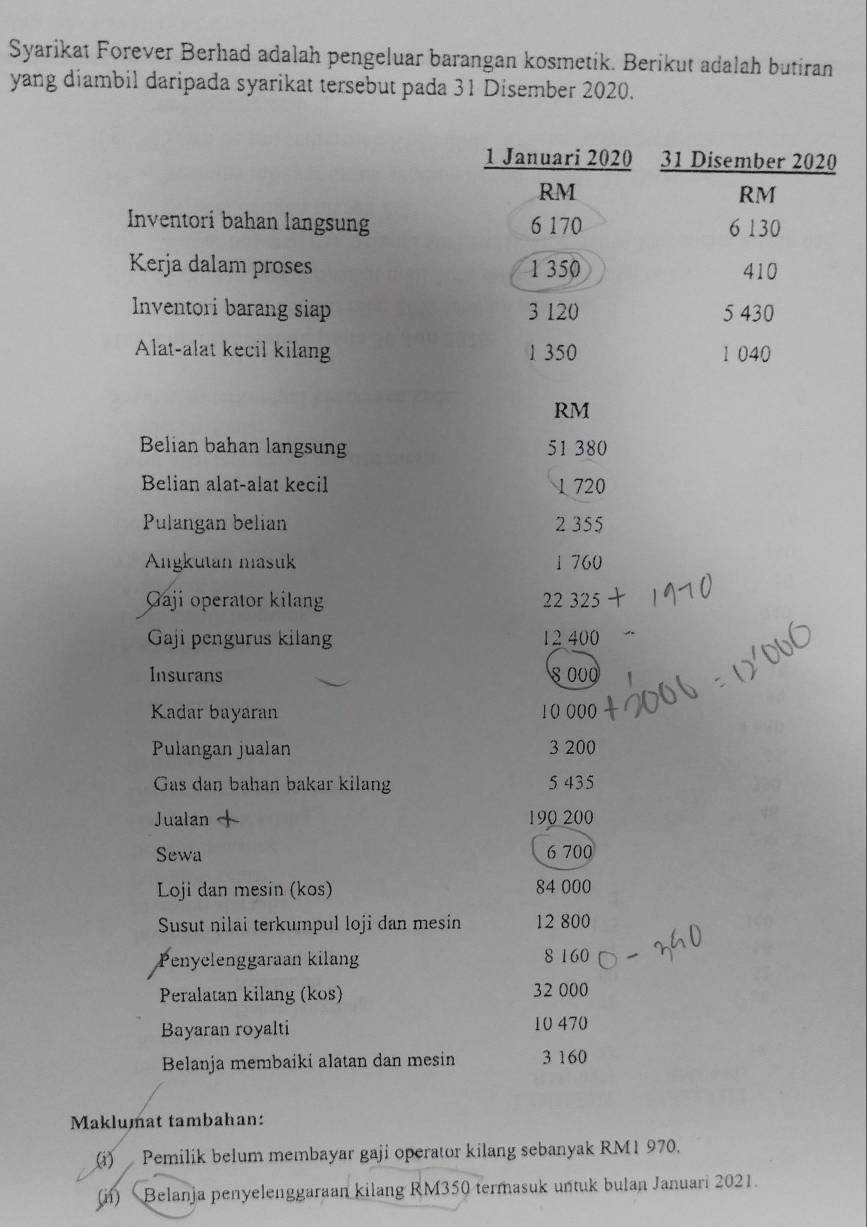 Syarikat Forever Berhad adalah pengeluar barangan kosmetik. Berikut adalah butiran
yang diambil daripada syarikat tersebut pada 31 Disember 2020.
1 Januari 2020 31 Disember 2020
RM RM
Inventori bahan langsung 6 170 6 130
Kerja dalam proses 1 350 410
Inventori barang siap 3 120 5 430
Alat-alat kecil kilang 1 350 1 040
RM
Belian bahan langsung 51 380
Belian alat-alat kecil 1 720
Pulangan belian 2 355
Angkutan masuk 1 760
Gaji operator kilang 22 325 + 1970
Gaji pengurus kilang 12 400
Insurans 8 000
Kadar bayaran 10 000 + 2000 = 12'000
Pulangan jualan 3 200
Gas dan bahan bakar kilang 5 435
Jualan + 190 200
Sewa 6 700
Loji dan mesin (kos) 84 000
Susut nilai terkumpul loji dan mesin 12 800
Penyelenggaraan kilang 8 160 -
Peralatan kilang (kos) 32 000
Bayaran royalti 10 470
Belanja membaiki alatan dan mesin 3 160
Maklumat tambahan:
(i) Pemilik belum membayar gaji operator kilang sebanyak RM1 970.
(ii) Belanja penyelenggaraan kilang RM350 termasuk untuk bulan Januari 2021.